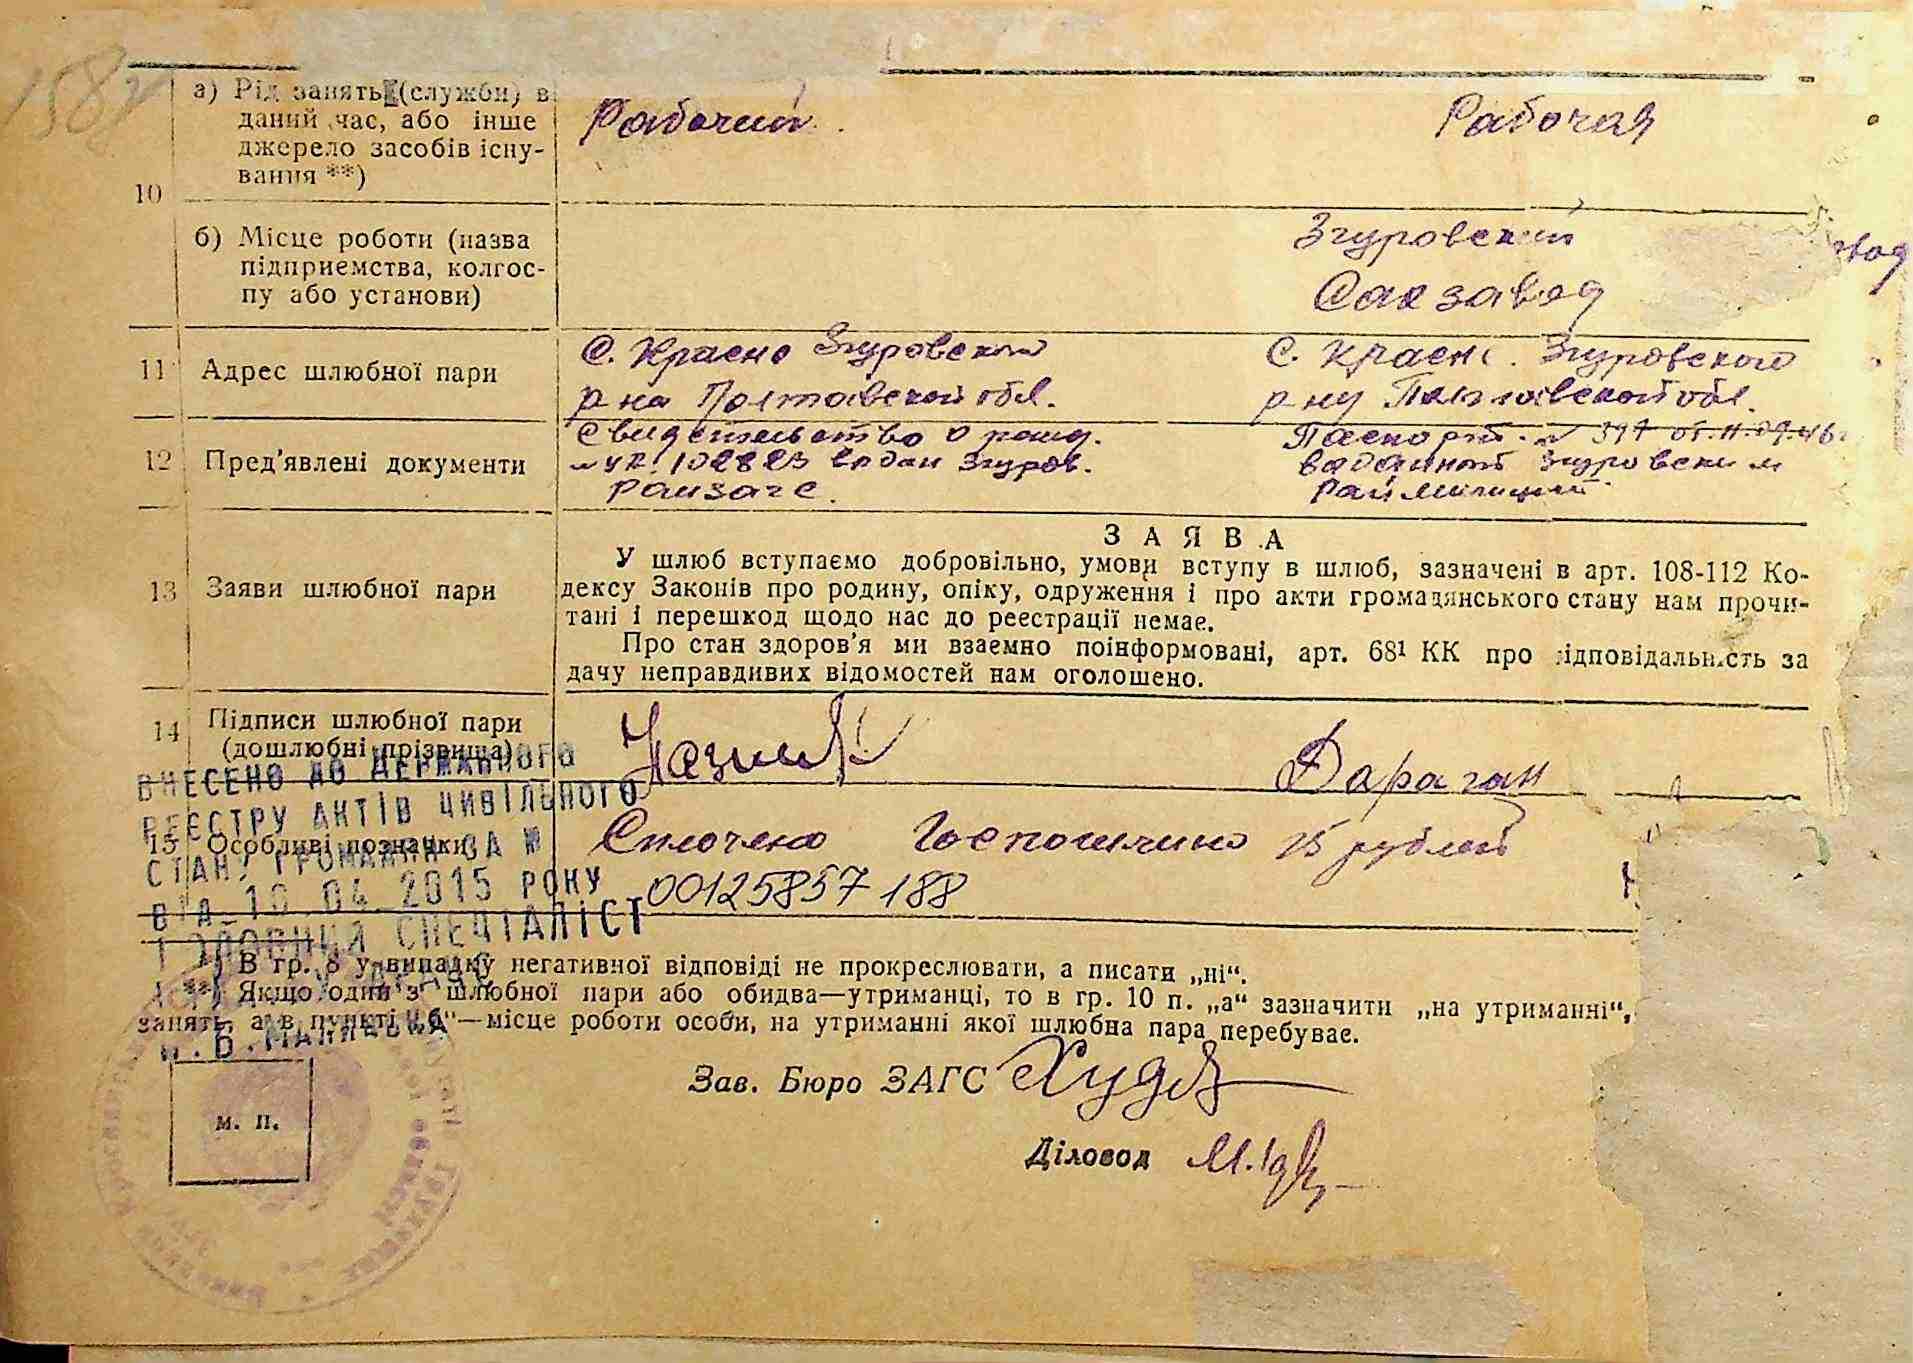 158
а) Рід занять (служби) в
даний час, або інше
джерело засобів існу-
вання **)
Рабочий.
Рабочая
10
б) Місце роботи (назва
підприємства, колгос-
пу або установи)
Згуровский
Сахзавод
11
Адрес шлюбної пари
С. Красно Згуровского
р на Полтавской обл.
С. Красн. Згуровского
р ну Полтавской обл.
12
Пред'явлені документи
Свидетельство о рожд.
102823 Згуров.
райзагс.
Паспорт № 397 от 11.07.46г
Згуровским
Раймилицией
13
Заяви шлюбної пари
ЗАЯВА
У шлюб вступаємо добровільно, умови вступу в шлюб, зазначені в арт. 108-112 Ко-
дексу Законів про родину, опіку, одруження і про акти громадянського стану нам прочи-
тані і перешкод щодо нас до реєстрації немає.
Про стан здоров'я ми взаємно поінформовані, арт. 68¹ КК про відповідальність за
дачу неправдивих відомостей нам оголошено.
14
Підписи шлюбної пари
(дошлюбні прізвища)
Дараган
ВНЕСЕНО ДО ДЕРЖАВНОГО
РЕЄСТРУ АКТІВ ЦИВІЛЬНОГО
15 Особливі позначки
СТАНУ ГРОМАДЯН ЗА №
Сплочено Госпошлино 15 рублей
00125857188
ВІД 10.04.2015 РОКУ
ГОЛОВНИЙ СПЕЦІАЛІСТ
*) В гр. 8 у випадку негативної відповіді не прокреслювати, а писати „ні“.
**) Якщо один з шлюбної пари або обидва—утриманці, то в гр. 10 п. „а“ зазначити „на утриманні“,
занять, а в пункті „б“—місце роботи особи, на утриманні якої шлюбна пара перебуває.
Зав. Бюро ЗАГС
м. п.
Діловод